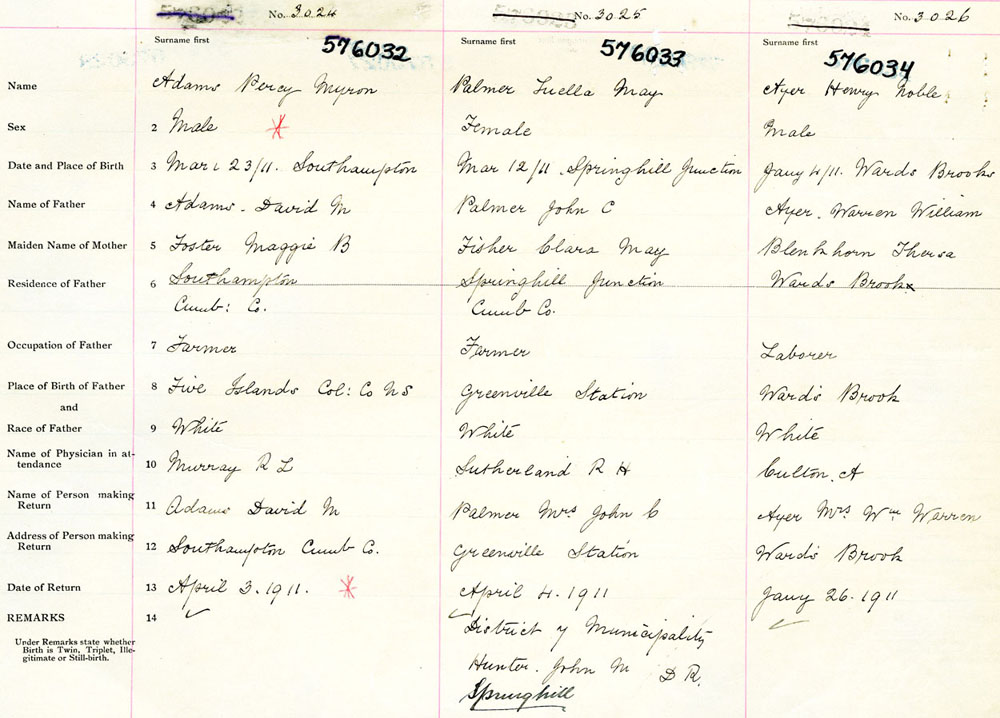 No. 3024
No. 3025
No. 3026
Surname first
Surname first
Surname first
576032
576033
576034
Name
Adams Percy Myron
Palmer Luella May
Ayer Henry Noble
Sex
2 Male
Female
Male
Date and Place of Birth
3 Mar 23/11. Southampton
Mar 12/11. Springhill Junction
Jany 4/11. Wards Brooks
Name of Father
4 Adams. David M
Palmer John C
Ayer. Warren William
Maiden Name of Mother
5 Foster Maggie B
Fisher Clara May
Blenkhorn Thersa
Residence of Father
6 Southampton
Cumb: Co.
Springhill Junction
Cumb Co.
Wards Brook
Occupation of Father
7 Farmer
Farmer
Laborer
Place of Birth of Father
8 Five Islands Col: Co NS
Greenville Station
Ward's Brook
and
Race of Father
9 White
White
White
Name of Physician in at-
tendance
10 Murray R L
Sutherland R H
Culton. A
Name of Person making
Return
11 Adams David M
Palmer Mrs John C
Ayer Mrs Wm Warren
Address of Person making
Return
12 Southampton Cumb Co.
Greenville Station
Ward's Brook
Date of Return
13 April 3. 1911.
April 4. 1911
Jany 26. 1911
REMARKS
14
Under Remarks state whether
Birth is Twin, Triplet, Ille-
gitimate or Still-birth.
District of Municipality
Hunter. John M D R.
Springhill